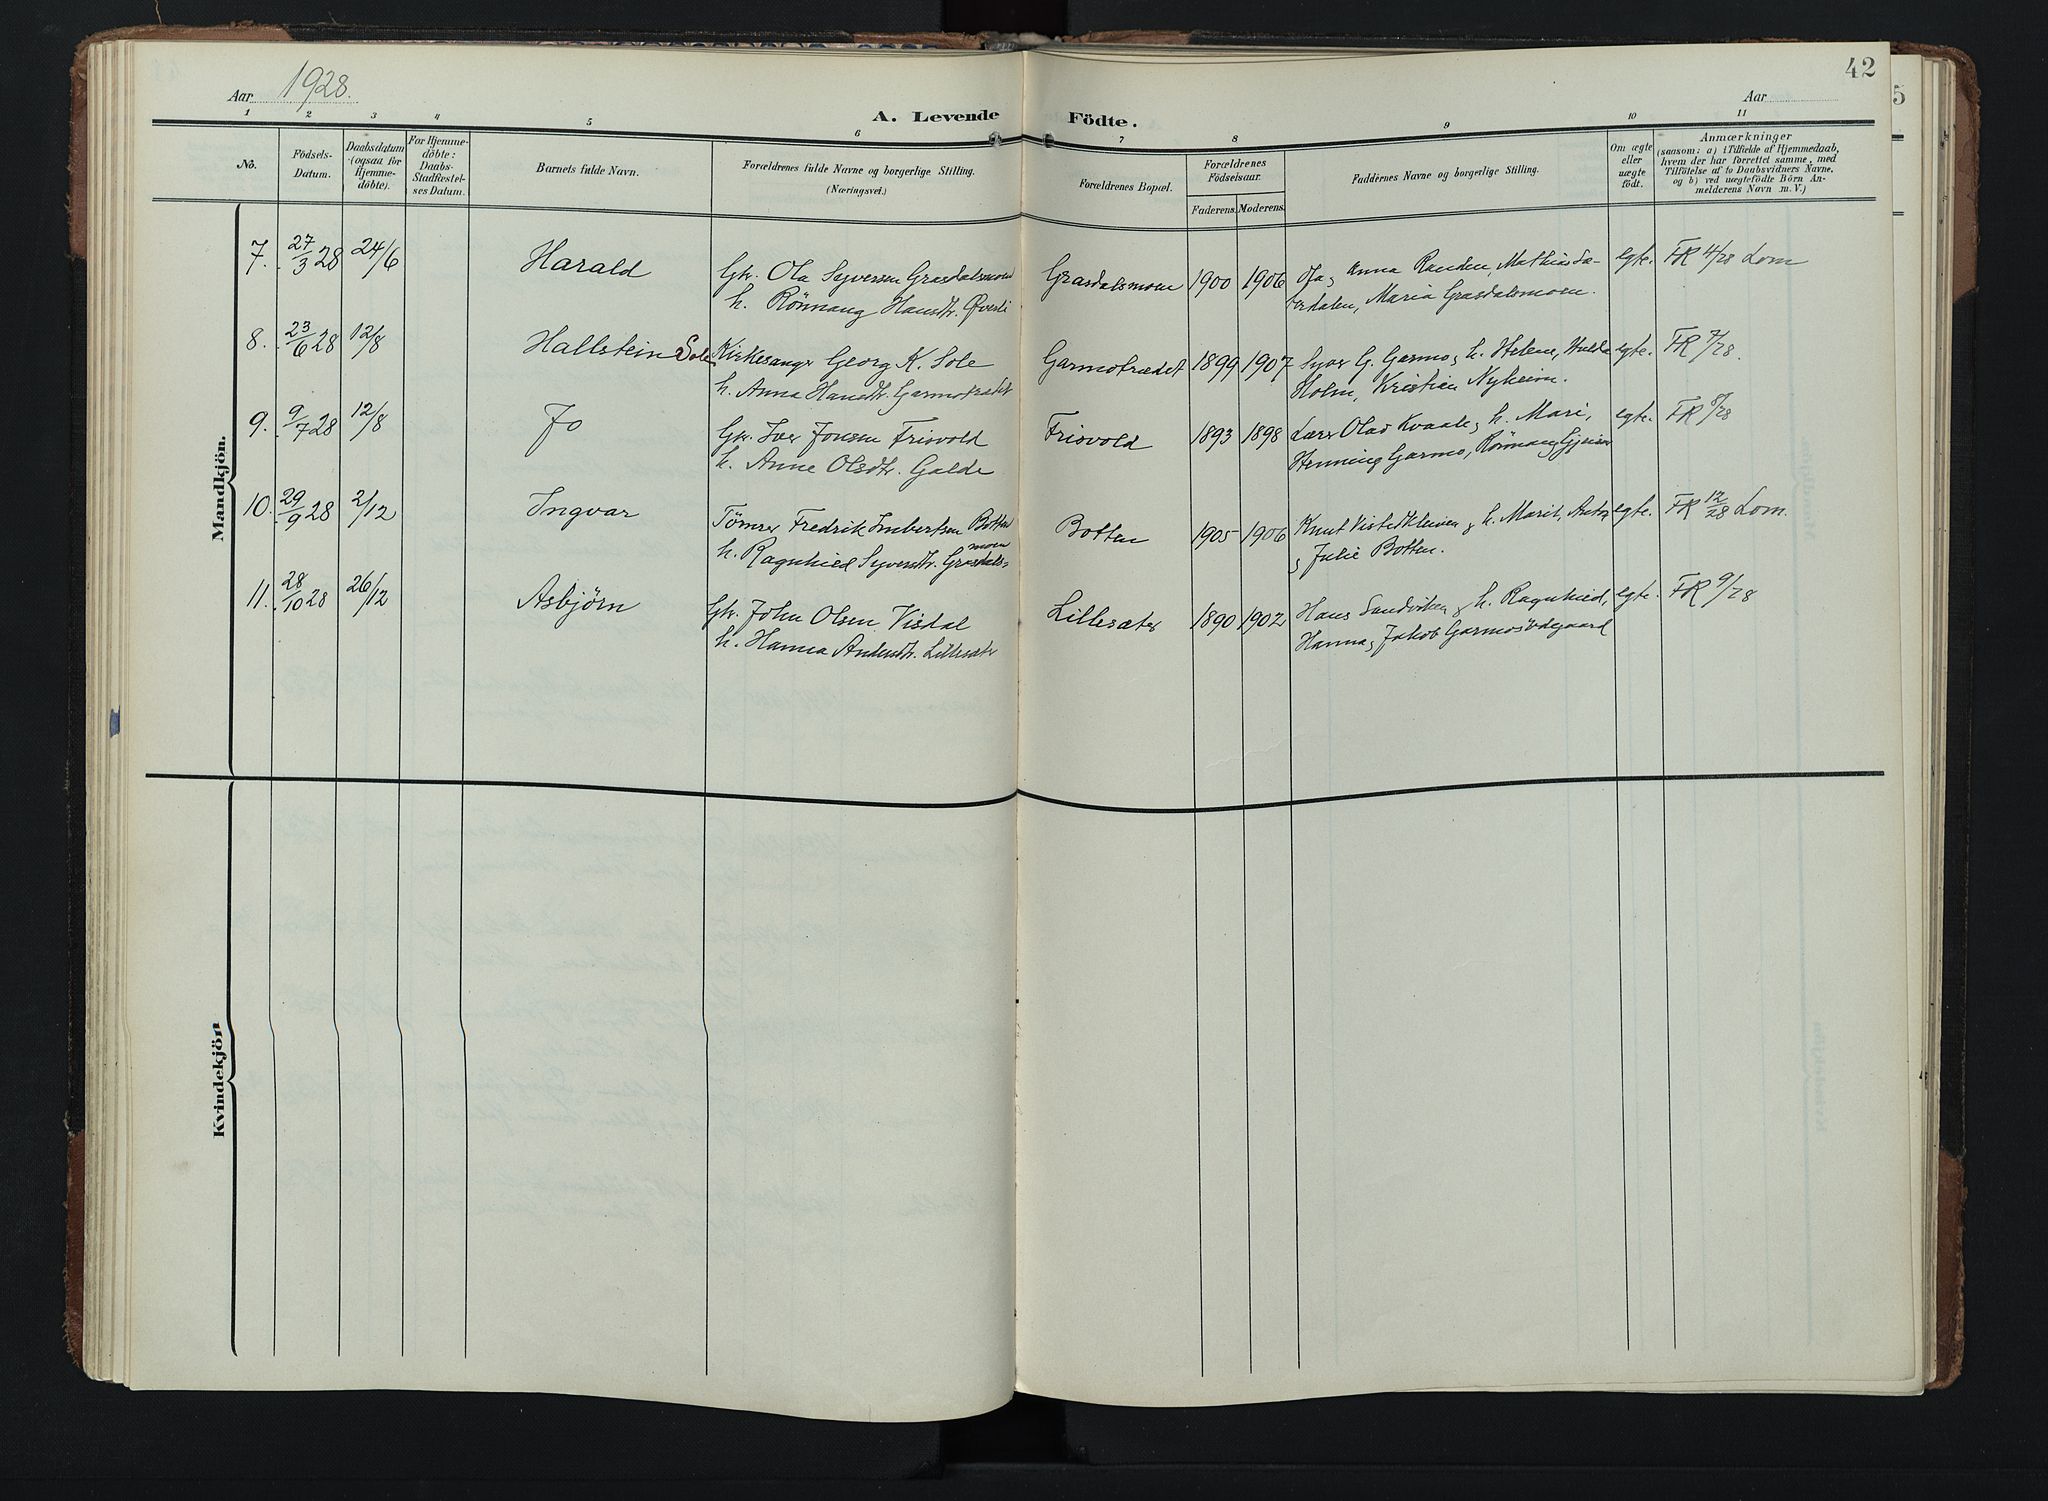 42
Aar 1928.
A. Levende Födte.
Aar
5
1 2 3 4 5 6 7 8 9 10 11
No.
Födsels-
Datum.
Daabsdatum
(ogsaa for
Hjemme-
döbte).
For Hjemme-
döbte:
Daabs-
Stadfæstel-
ses Datum.
Barnets fulde Navn.
Forældrenes fulde Navne og borgerlige Stilling.
(Næringsvei.)
Forældrenes Bopæl.
Forældrenes
Födselsaar.
Faderens. Moderens.
Faddernes Navne og borgerlige Stilling.
Om ægte
eller
uægte
födt.
Anmærkninger
(saasom: a) i Tilfælde af Hjemmedaab,
hvem der har forrettet samme, med
Tilföielse af to Daabsvidners Navne,
og b) ved uægtefödte Börn An-
melderens Navn m. V.)
Mandkjön.
7. 27/3 28 24/6 Harald Gbr. Ola Syversen Grasdalsmoen Grasdalsmoen 1900 1906 Ola, Anna Randen, Mathias Sæ- egte. FR 4/28 Lom
h. Rönnaug Hansdtr. Øverli terdalen, Maria Grasdalsmoen.
8. 23/6 28 12/8 Hallstein Sole Kirkesanger Georg K. Sole Garmotrædet 1899 1907 Syver G. Garmo, h. Helene, Hulda egte. FR 7/28.
h. Anna Hansdtr. Garmotrædet Holm, Kristian Nyheim.
9. 9/7 28 12/8 Jo Gbr. Iver Jonsen Frisvold Frisvold 1893 1898 Lærer Olav Kvaale, h. Mari, egte. FR 8/28
h. Anne Olsdtr. Galde Henning Garmo, Rönnaug
10. 29/9 28 2/12 Ingvar Tömrer Fredrik Imbertsen Botten Botten 1905 1906 Knut Vistedkleiven, h. Marit, egte. FR 12/28 Lom.
h. Ragnhild Syversdtr. Grasdals-moen & Julie Botten.
11. 28/10 28 26/12 Asbjörn Gbr. John Olsen Visdal Lillesæter 1890 1902 Hans Sandviken, h. Ragnhild, egte. FR 9/28
h. Hanna Andersdtr. Lillesæter Hanna, Jakob Garmosödegaard
Kvindekjön